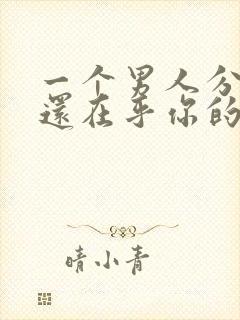 一个男人分
還在乎你的
晴小青